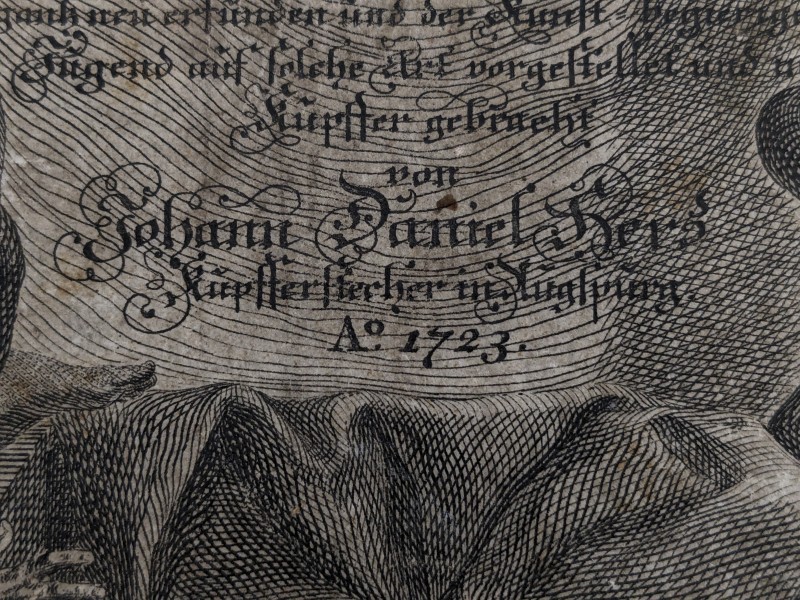 gantz neu erfunden und der Kunst=begierige
Jugend auf solche Art vorgestellet und
Kupffer gebracht
von
Johann Daniel Herz
Kupfferstecher in Augspurg.
Aº 1723.